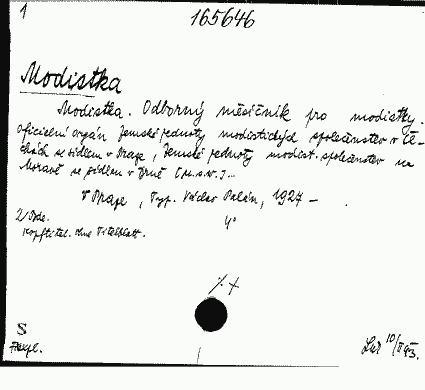 1
165646
Modistka
Modistka. Odborný měsíčník pro modistky.
Oficielní orgán Zemské jednoty modistických společenstev v Če-
chách se sídlem v Praze, Zemské jednoty modist. společenstev na
Moravě se sídlem v Brně
V Praze, Typ. Václav Palán, 1927 –
4°
Kopftitel. Ohne Titelblatt.
S